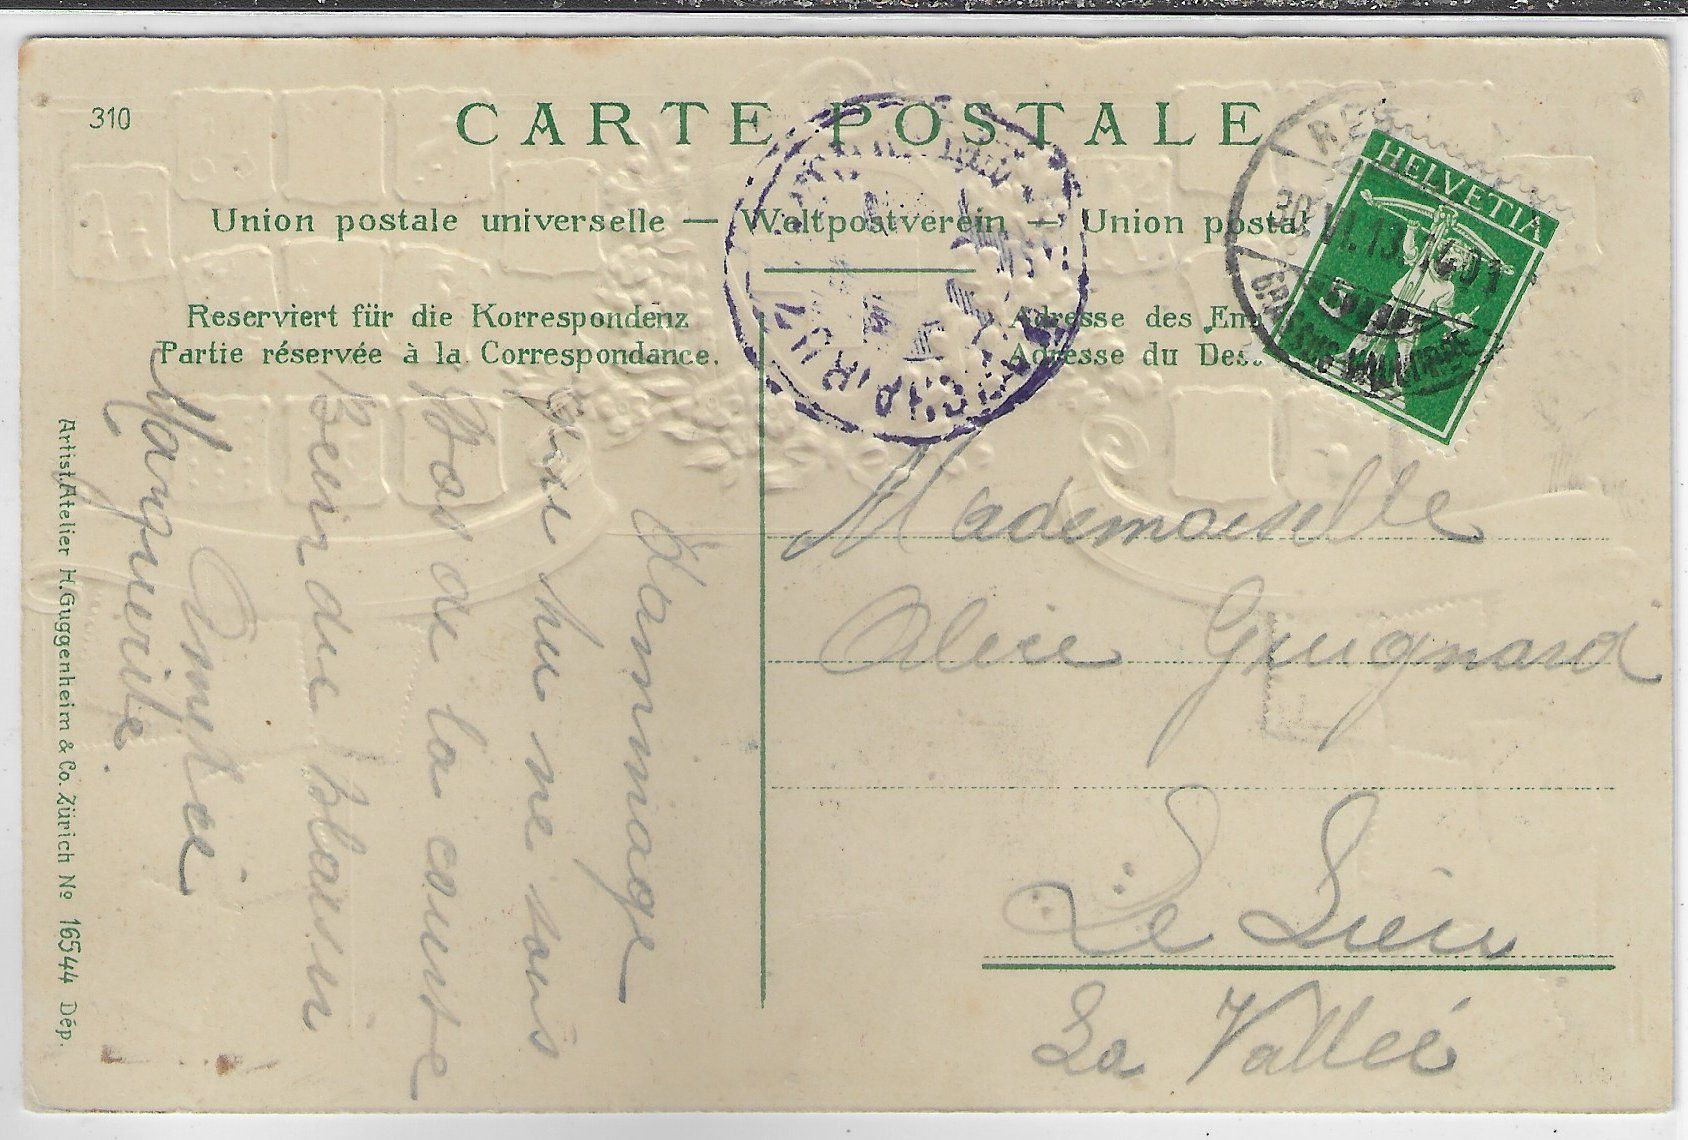 310
CARTE POSTALE
Union postale universelle — Weltpostverein — Union postal
Reserviert für die Korrespondenz
Partie réservée à la Correspondance.
Adresse des Em
Adresse du Des
HELVETIA
30.VI.13.
BRASSUS-
Dommage
que tu ne sois
pas de la course
Bein du plaisir
Amitié
Marguerite
Mademoiselle
Alice Guignard
Le Lieu
La Vallée
Artist.Atelier H.Guggenheim & Co. Zürich No 16544 Dép.